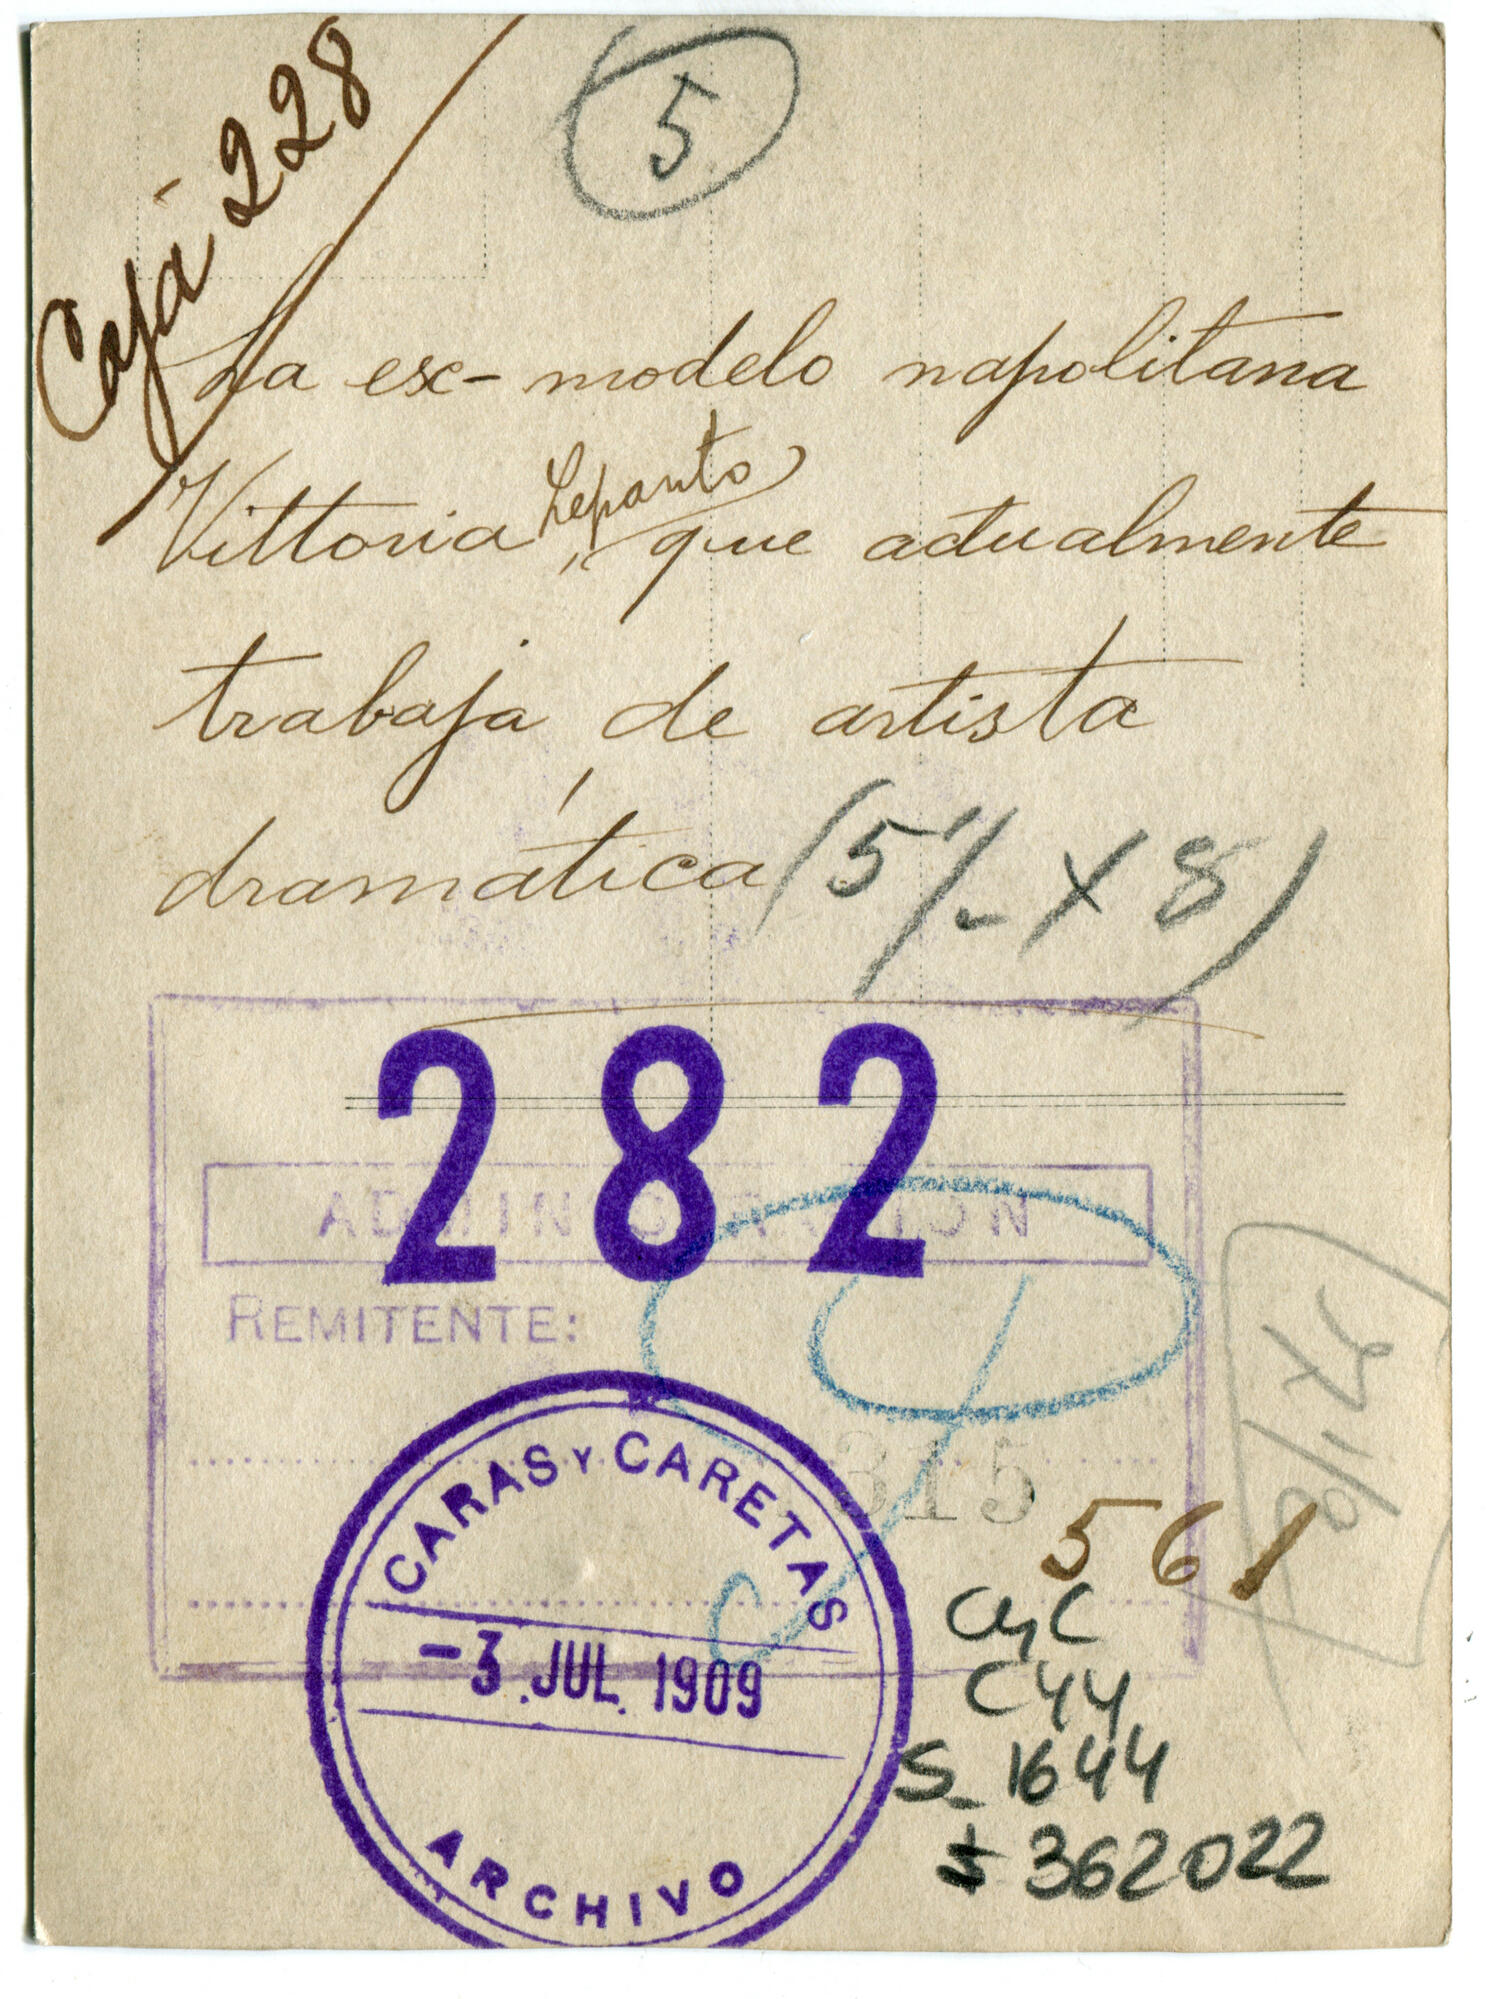 Caja 228
5
La ex-modelo napolitana
Vittoria Lepanto, que actualmente
trabaja de artista
dramática (5 % x 8)
282
ADMINISTRACION
REMITENTE:
315
561
CARAS Y CARETAS
-3.JUL.1909
ARCHIVO
CyC
C44
S_1644
362022